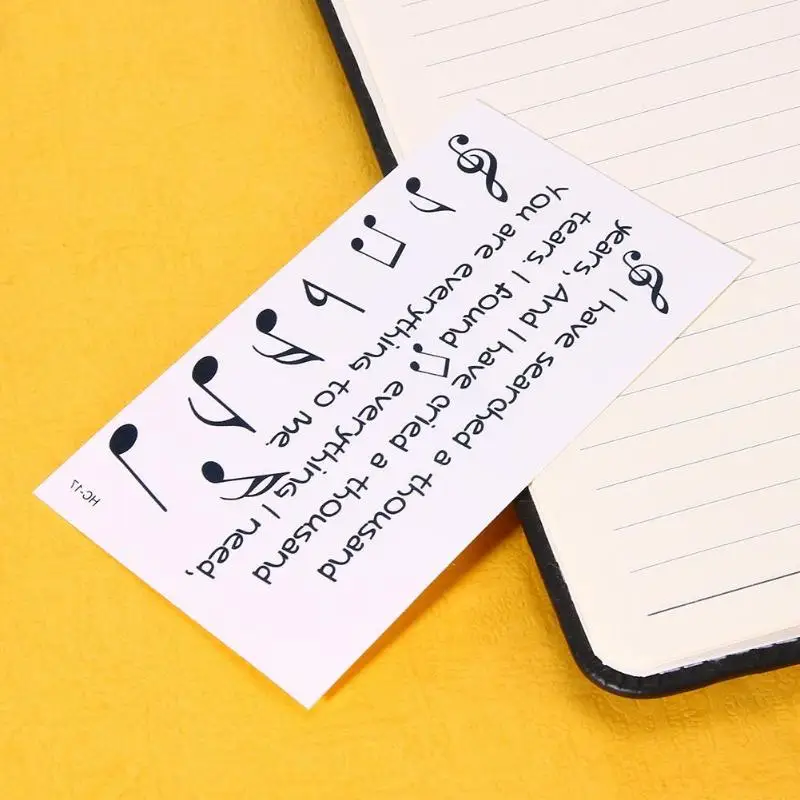 I have searched a thousand
years, And I have cried a thousand
tears. I found everything I need,
You are everything to me.
HC-17